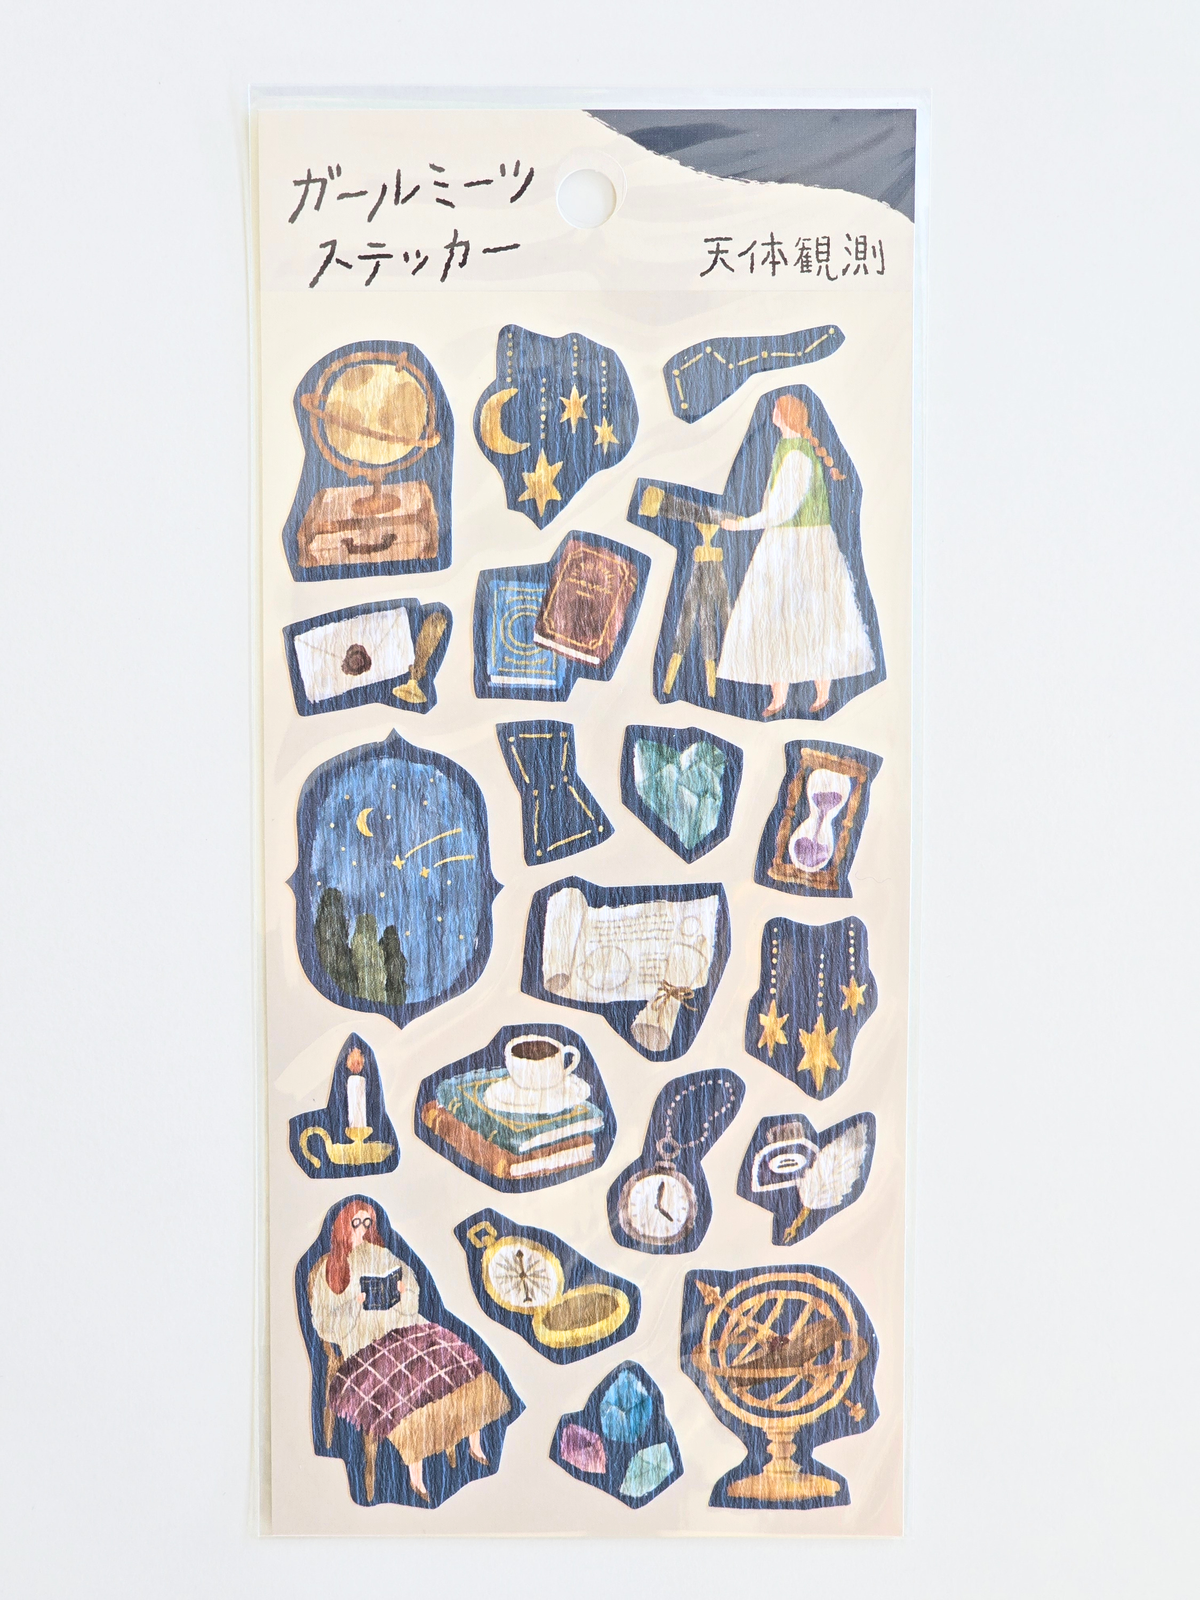 ガールミーツ
ステッカー
天体観測